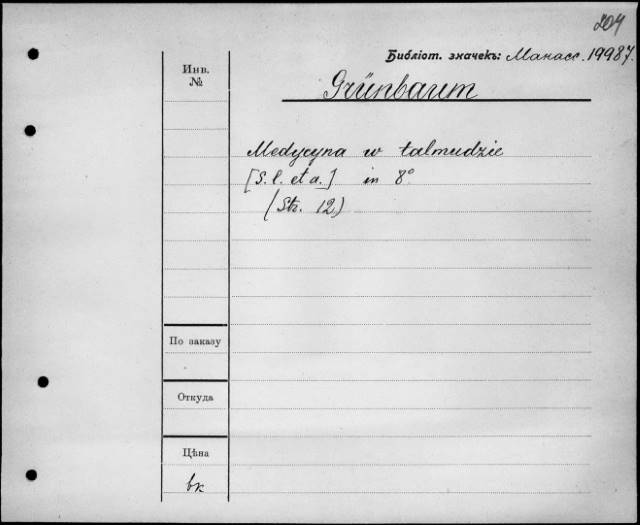 204
Библіот. значекъ: Манасс. 19987.
Инв.
№
Grünbaum
Medycyna w talmudzie
[S. l. et a.] in 8°
(Str. 12)
По заказу
Откуда
Цѣна
bk